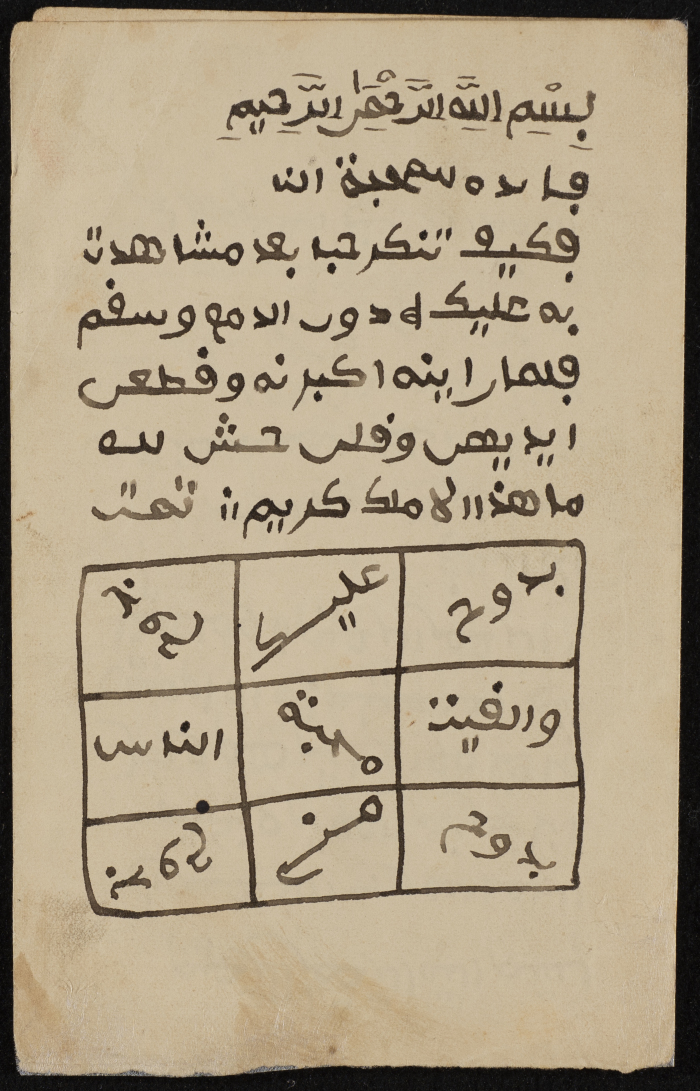 بِسْمِ اللَّهِ الرَّحْمٰنِ الرَّحِيمِ
فايده محبة
فكيف تنكر حبا بعد مشاهدت
به عليك دور الدمع وسقم
فلما راينه اكبرنه وقطعن
ايديهن وقلن حش لله
ما هذا الا ملك كريم تمت
بدوح عليك
والقيت محبة الناس
بدوح مني